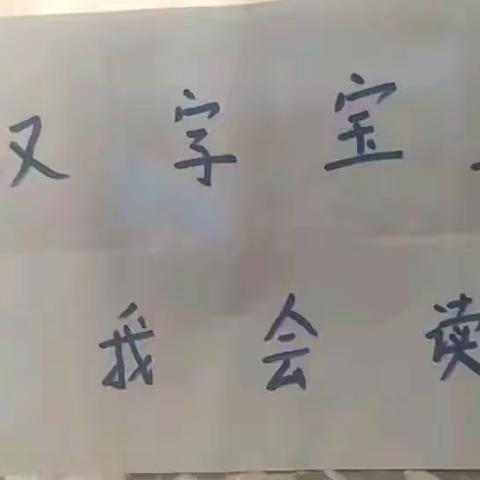 汉字宝
我会读